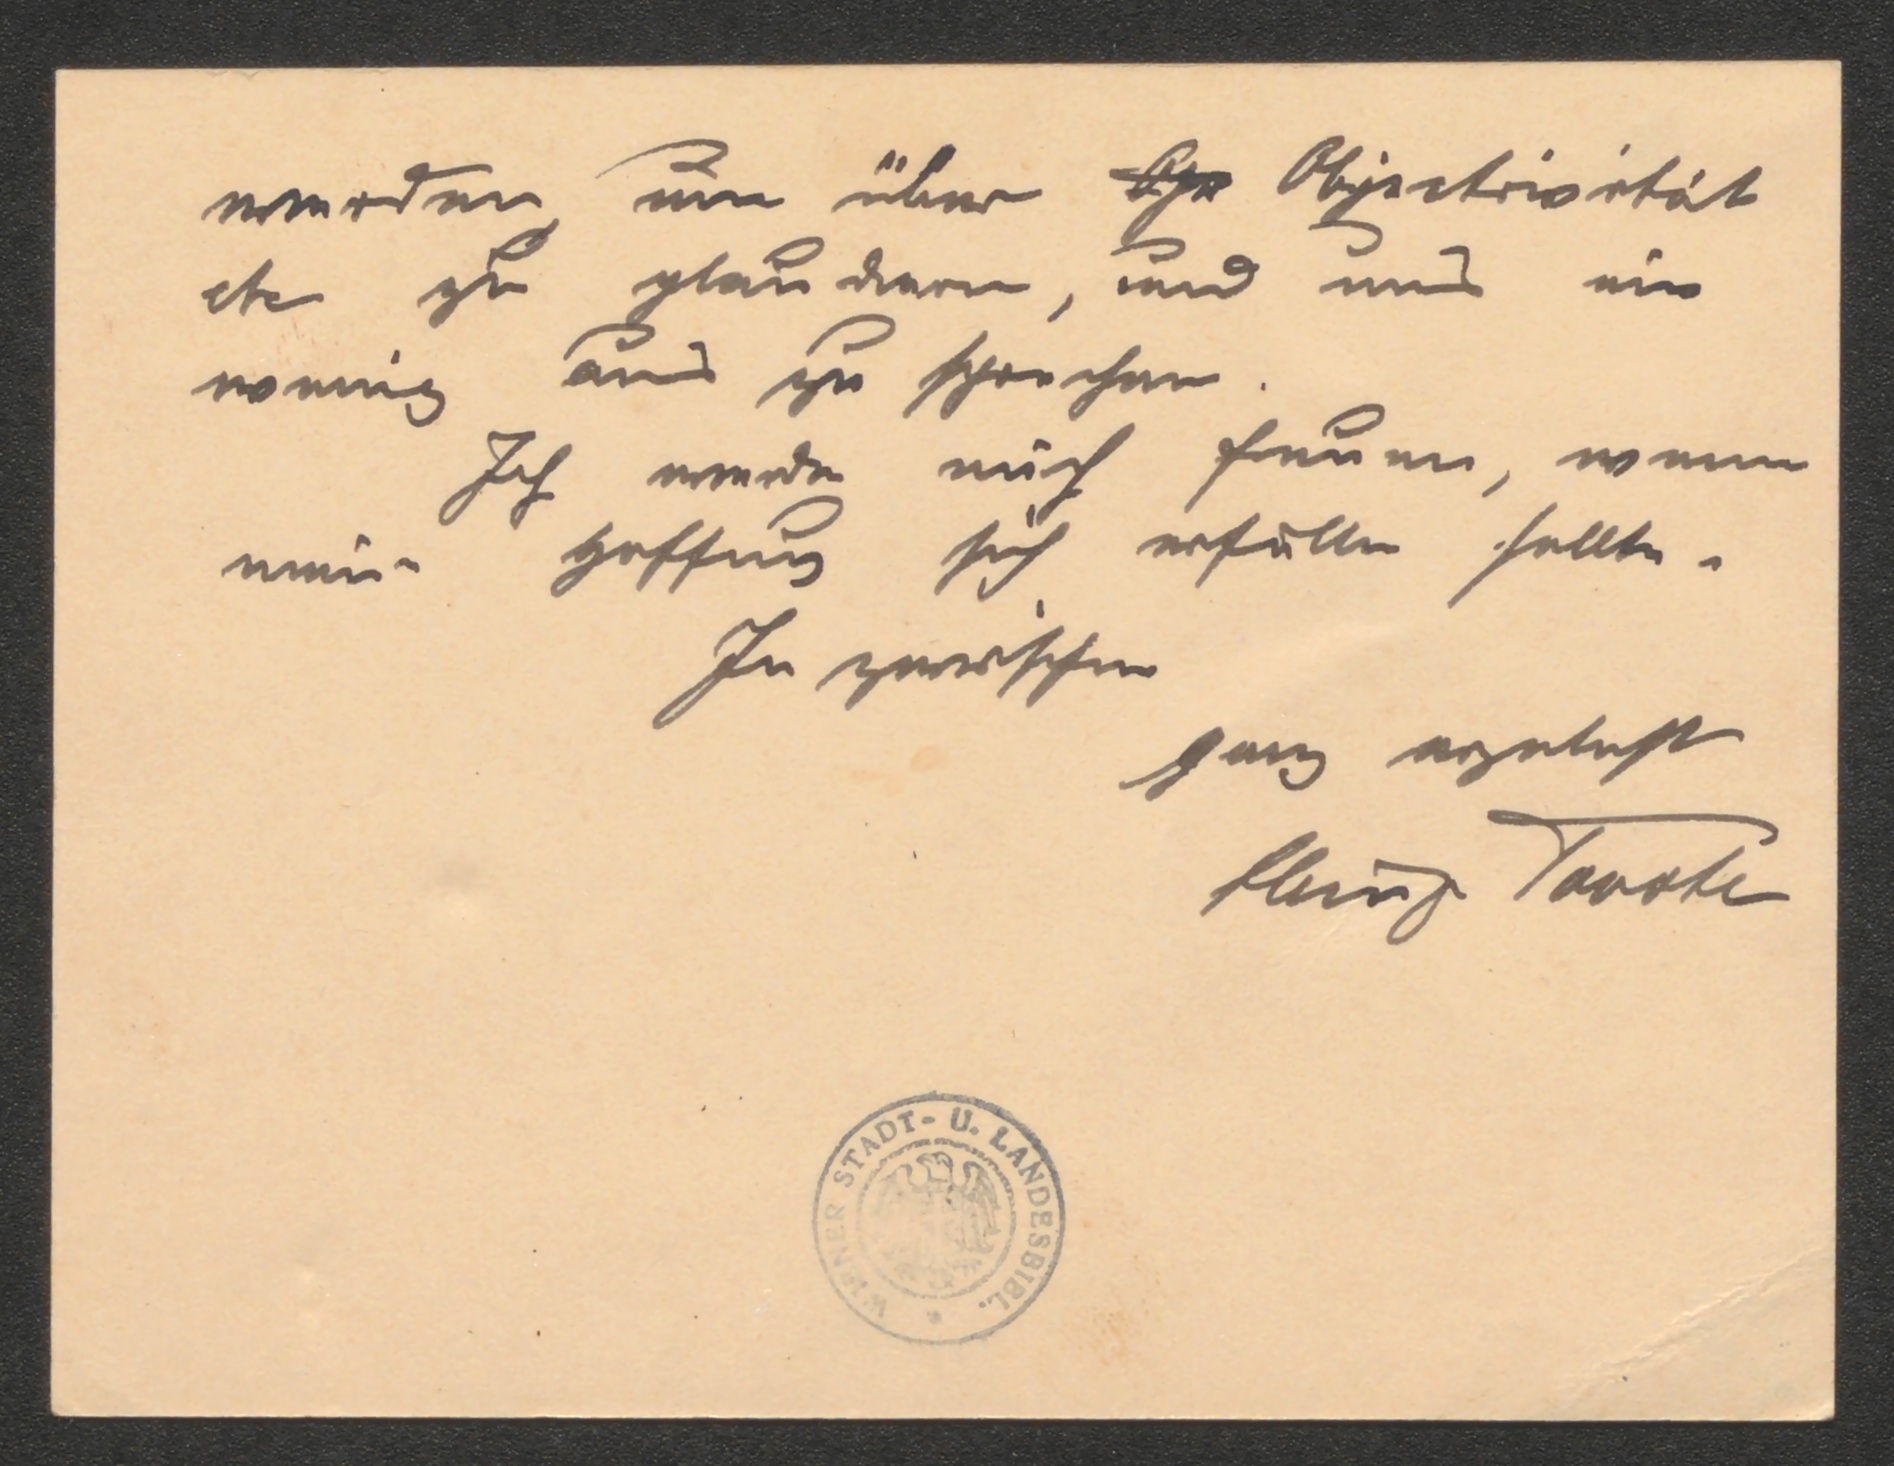 werden, um über Objectivität
etc zu plaudern, und uns ein
wenig aus zu sprechen.
Ich werde mich freuen, wenn
meine Hoffnung sich erfüllen sollte.
In zwischen
ganz ergebenst
Heinz Tovote
WIENER STADT- U. LANDESBIBL.